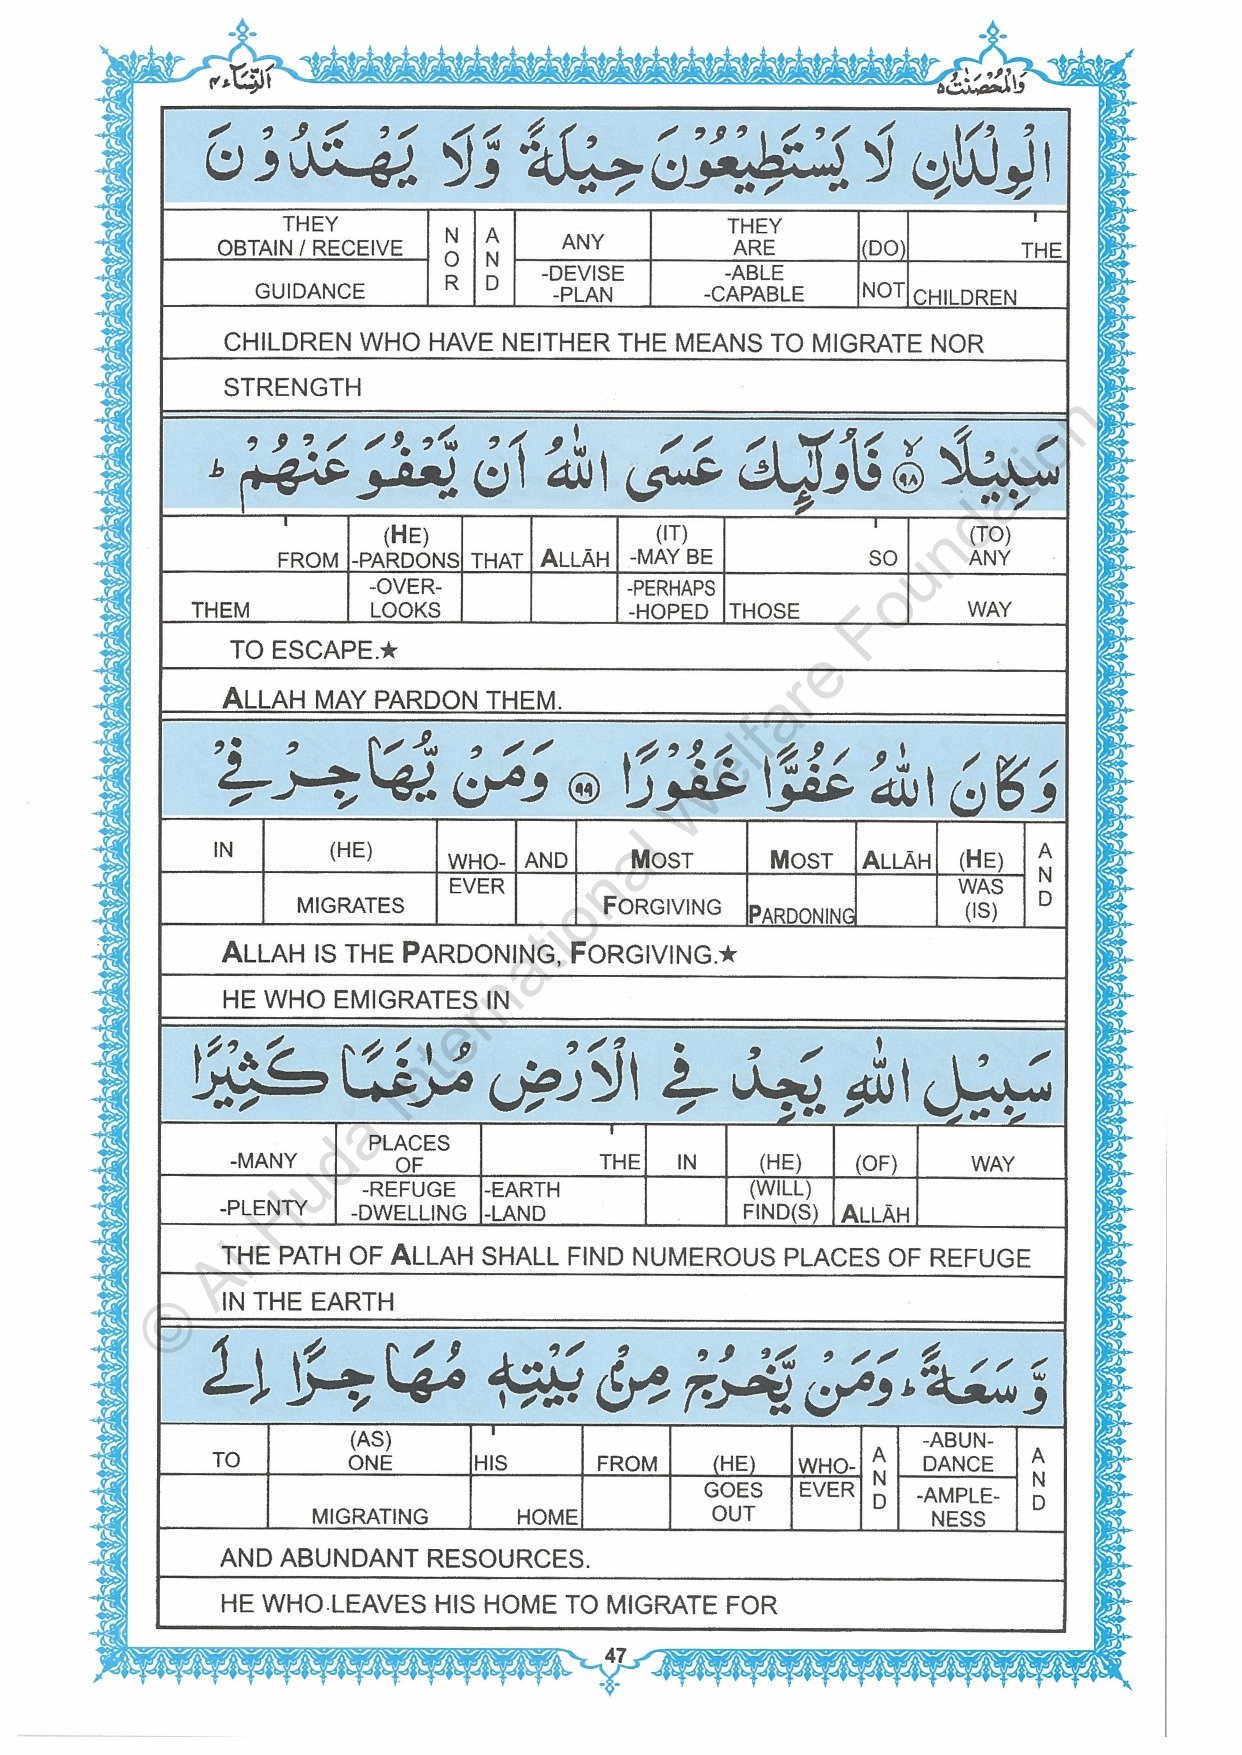 النِّسَآء ٤
وَالْمُحْصَنٰتُ ٥
الْوِلْدَانِ لَا يَسْتَطِيْعُوْنَ حِيْلَةً وَّلَا يَهْتَدُوْنَ
THEY NOR AND ANY THEY (DO) THE
OBTAIN / RECEIVE ARE
GUIDANCE -DEVISE -ABLE NOT CHILDREN
-PLAN -CAPABLE
CHILDREN WHO HAVE NEITHER THE MEANS TO MIGRATE NOR
STRENGTH
سَبِيْلًا ۙ ﴿٩٨﴾ فَاُولٰٓئِكَ عَسَى اللّٰهُ اَنْ يَّعْفُوَ عَنْهُمْ ؕ
FROM (HE) THAT ALLĀH (IT) SO (TO)
-PARDONS -MAY BE ANY
THEM -OVER- -PERHAPS THOSE WAY
LOOKS -HOPED
TO ESCAPE.★
ALLAH MAY PARDON THEM.
وَكَانَ اللّٰهُ عَفُوًّا غَفُوْرًا ﴿٩٩﴾ وَمَنْ يُّهَاجِرْ فِيْ
IN (HE) WHO- AND MOST MOST ALLĀH (HE) AND
MIGRATES EVER FORGIVING PARDONING WAS
(IS)
ALLAH IS THE PARDONING, FORGIVING.★
HE WHO EMIGRATES IN
سَبِيْلِ اللّٰهِ يَجِدْ فِي الْاَرْضِ مُرٰغَمًا كَثِيْرًا
-MANY PLACES THE IN (HE) (OF) WAY
OF
-PLENTY -REFUGE -EARTH (WILL) ALLĀH
-DWELLING -LAND FIND(S)
THE PATH OF ALLAH SHALL FIND NUMEROUS PLACES OF REFUGE
IN THE EARTH
وَّسَعَةً ؕ وَمَنْ يَّخْرُجْ مِنْۢ بَيْتِهٖ مُهَاجِرًا اِلَى
TO (AS) HIS FROM (HE) WHO- AND -ABUN- AND
ONE DANCE
MIGRATING HOME GOES EVER -AMPLE-
OUT NESS
AND ABUNDANT RESOURCES.
HE WHO LEAVES HIS HOME TO MIGRATE FOR
47
© Al-Huda International Welfare Foundation